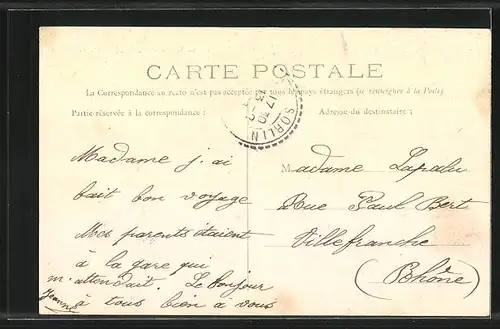 CARTE POSTALE
La Correspondance au recto n'est pas acceptée par tous les pays étrangers (se renseigner à la Poste)
Partie réservée à la correspondance :
Adresse du destinataire :
SORLIN
17 30
13
Madame j. ai
fait bon voyage
Mes parents étaient
à la gare qui
m'attendait. Le bonjour
à tous bien à vous
Jeanne
Madame Lapalu
Rue Paul Bert
Villefranche
(Rhône)